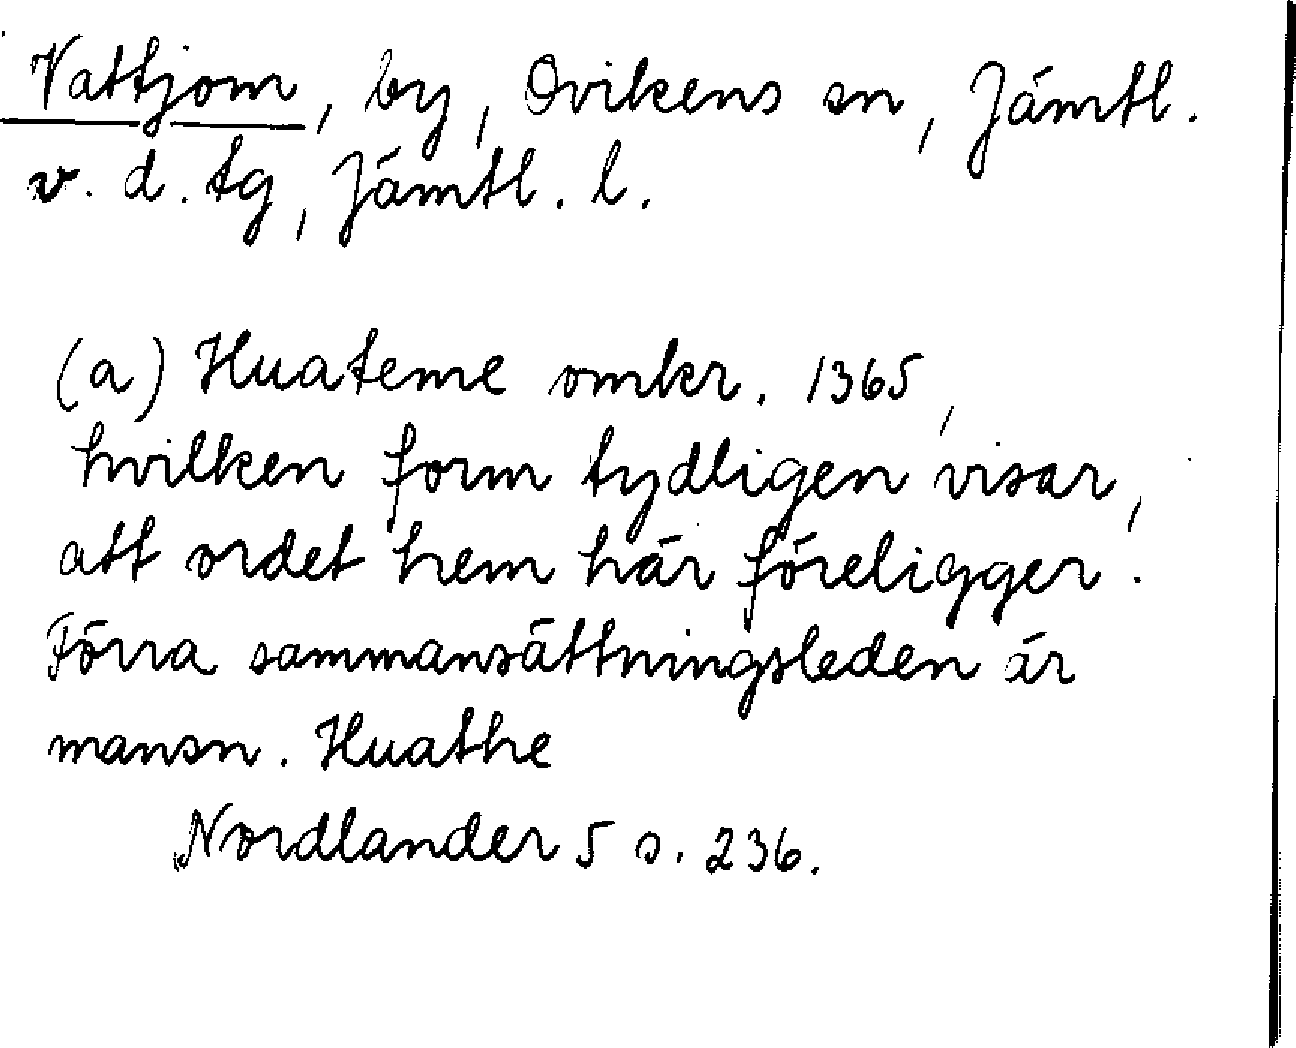 Vattjom, by, Ovikens sn, Jämtl.
v. d. tg, Jämtl. l.
(a) Huateme omkr. 1365,
hvilken form tydligen visar,
att ordet hem här föreligger.
Förra sammansättningsleden är
mansn. Huathe
Nordlander 5 s. 236.